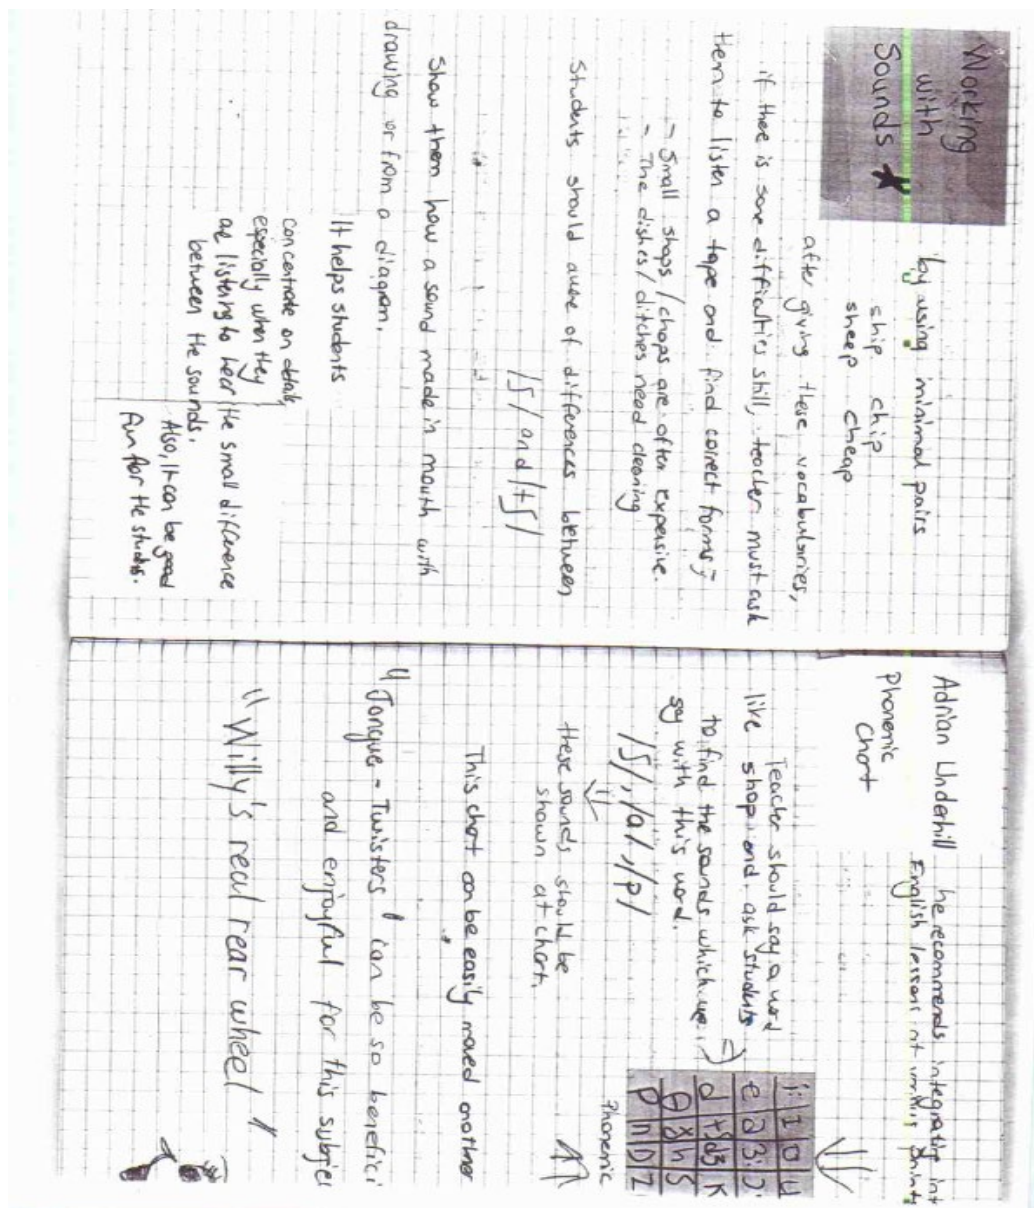 Working
with
Sounds
by using minimal pairs
ship chip
sheep cheap
after giving these vocabularies,
if there is some difficulties still, teacher must ask
them to listen a tape and find correct forms;
- Small shops / chops are often expensive.
- The dishes / ditches need cleaning
Students should awere of differences between
/ʃ/ and /tʃ/
Show them how a sound made in mouth with
drawing or from a diagram.
It helps students
concentrate on details,
especially when they
are listening to hear the small difference
between the sounds.
Also, It can be good
fun for the students.
Adrian Underhill he recommends integrating int
English lessons at various points
Phonemic
Chart
Teacher should say a word
like shop and ask students
to find the sounds which we
say with this word.
/ʃ/, /a/, /p/
these sounds should be
shown at chart.
i: I ʊ u
e ə 3: ɔ:
d tʃ dʒ k
θ ð h S
P n D Z
Phonemic
This chart can be easily moved another
"Tongue-Twisters" can be so benefici
and enjoyful for this subjec
"Willy's real rear wheel"